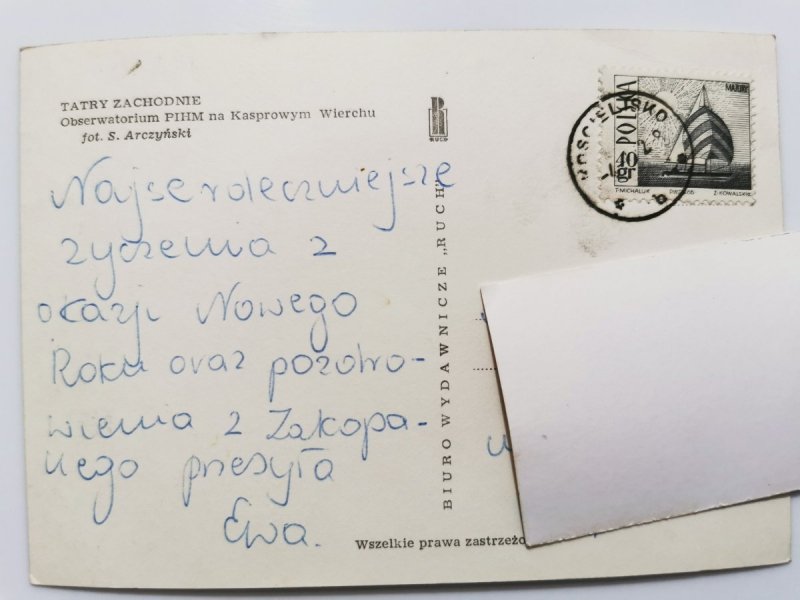 TATRY ZACHODNIE
Obserwatorium PIHM na Kasprowym Wierchu
fot. S. Arczyński
RUCH
Najserdeczniejsze
życzenia z
okazji Nowego
Roku oraz pozdro-
wienia z Zakopa-
nego przesyła
Ewa.
BIURO WYDAWNICZE „RUCH”
Wszelkie prawa zastrzeżo
MAZURY
POLSKA
40 gr
T.MICHALUK
Z.KOWALSKI
KOŚCIELISKO